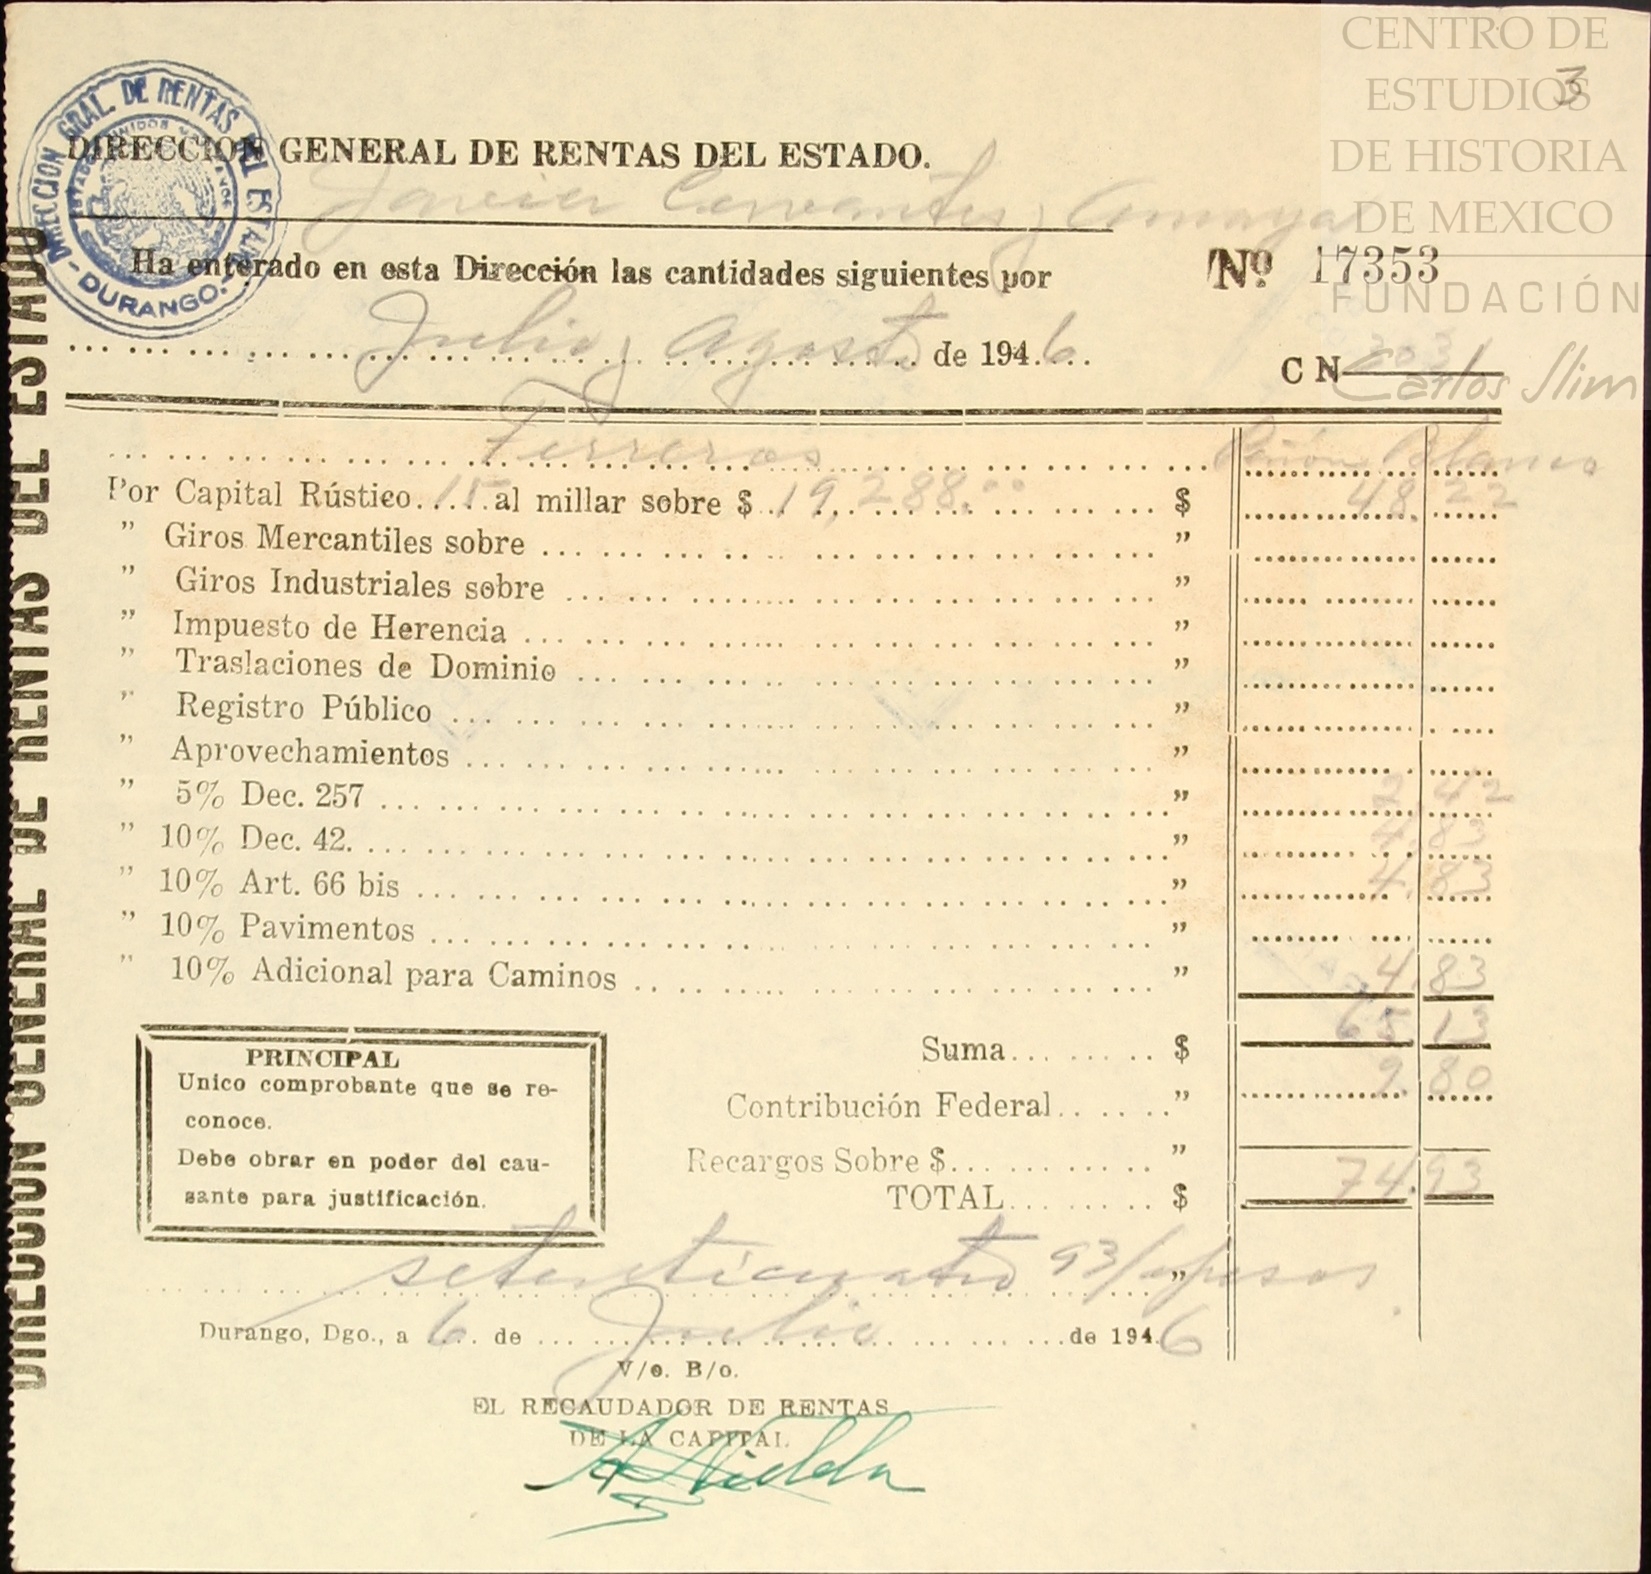 CENTRO DE
ESTUDIOS
DE HISTORIA
DE MEXICO
FUNDACIÓN
Carlos Slim
3
DIRECCION GRAL. DE RENTAS DEL ESTADO
- DURANGO. -
DIRECCION GENERAL DE RENTAS DEL ESTADO
DIRECCION GENERAL DE RENTAS DEL ESTADO.
Javier Cervantes y Amaya
Ha enterado en esta Dirección las cantidades siguientes por
Nº 17353
Julio y Agosto de 1946
C N
Ferreros Peñón Blanco
Por Capital Rústico 15 al millar sobre $ 19,288.00 $ 48.22
" Giros Mercantiles sobre "
" Giros Industriales sobre "
" Impuesto de Herencia "
" Traslaciones de Dominio "
" Registro Público "
" Aprovechamientos "
" 5% Dec. 257 " 2.42
" 10% Dec. 42. " 4.83
" 10% Art. 66 bis " 4.83
" 10% Pavimentos "
" 10% Adicional para Caminos " 4.83
Suma $ 65.13
Contribución Federal " 9.80
Recargos Sobre $ "
TOTAL $ 74.93
PRINCIPAL
Unico comprobante que se re-
conoce.
Debe obrar en poder del cau-
sante para justificación.
setenticuatro 93/ pesos
Durango, Dgo., a 6 de Julio de 1946
V/o. B/o.
EL RECAUDADOR DE RENTAS
DE LA CAPITAL